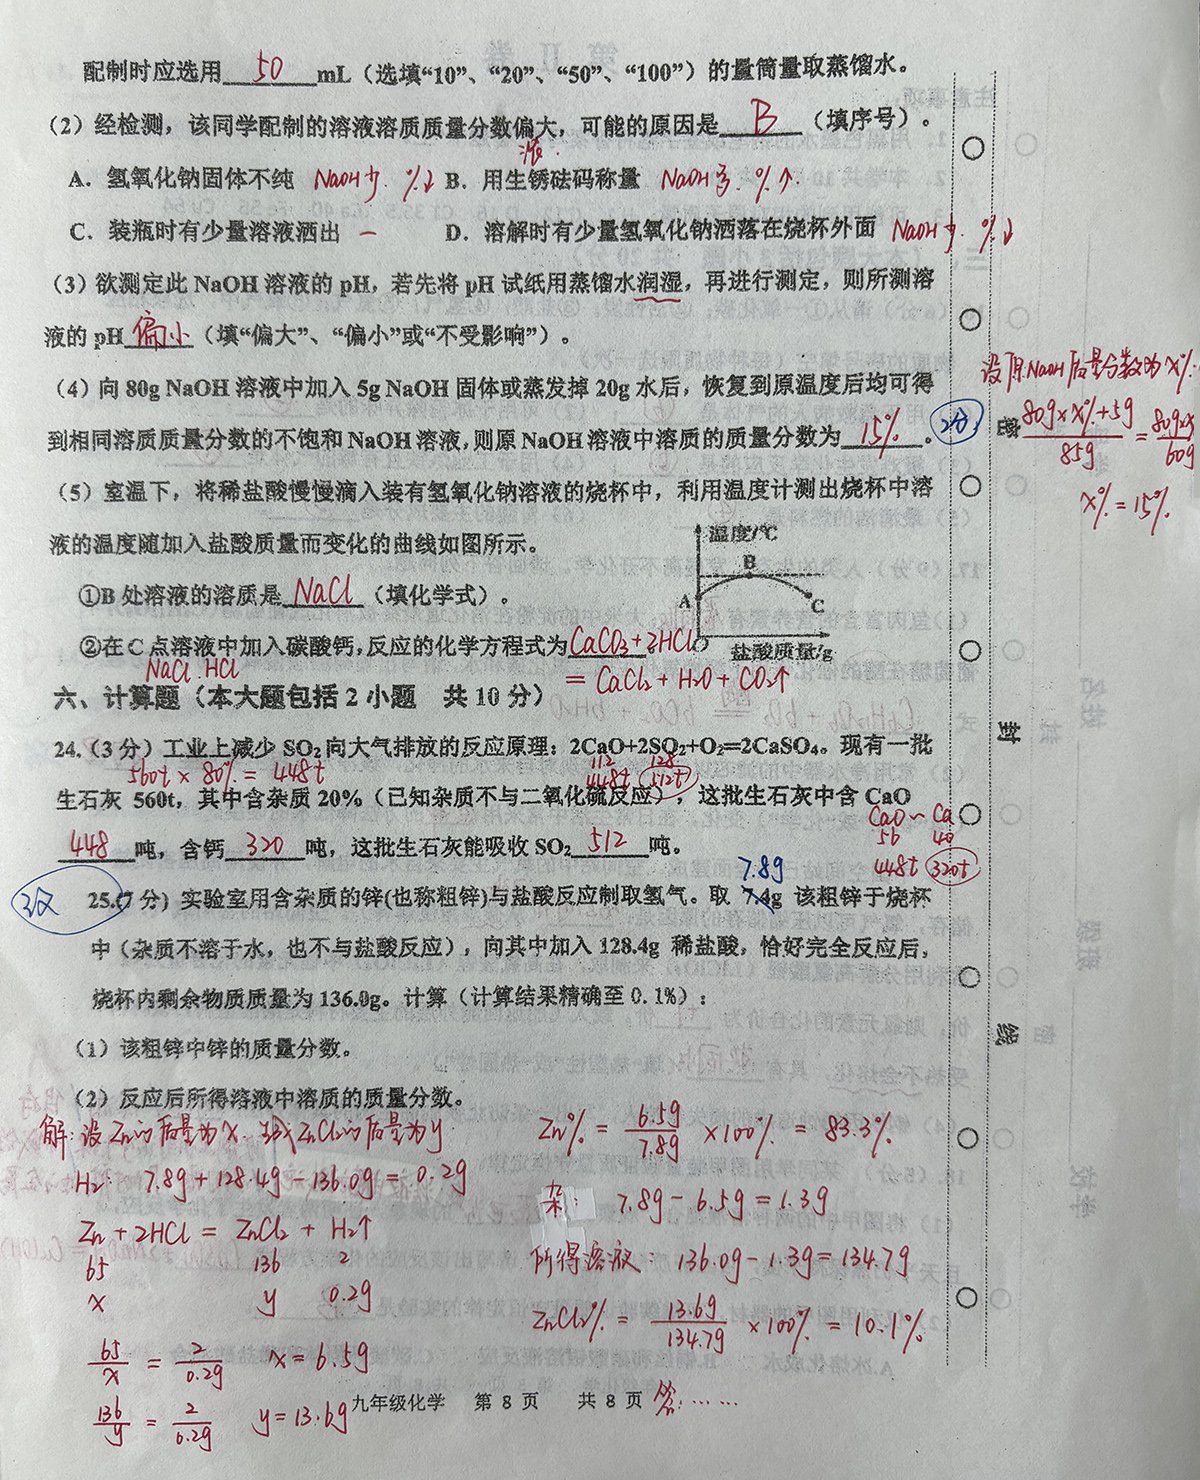 配制时应选用 50 mL（选填“10”、“20”、“50”、“100”）的量筒量取蒸馏水。
（2）经检测，该同学配制的溶液溶质质量分数偏大，可能的原因是 B （填序号）。
A．氢氧化钠固体不纯 NaOH少. %↓ B．用生锈砝码称量 NaOH多. %↑.
C．装瓶时有少量溶液洒出 一 D．溶解时有少量氢氧化钠洒落在烧杯外面 NaOH少. %↓
（3）欲测定此 NaOH 溶液的 pH，若先将 pH 试纸用蒸馏水润湿，再进行测定，则所测溶
液的 pH 偏小 （填“偏大”、“偏小”或“不受影响”）。
（4）向 80g NaOH 溶液中加入 5g NaOH 固体或蒸发掉 20g 水后，恢复到原温度后均可得
到相同溶质质量分数的不饱和 NaOH 溶液，则原 NaOH 溶液中溶质的质量分数为 15% 。 2分.
设原NaOH质量分数为x%:
80g×x%+5g / 85g = 80g×x / 60g
x%=15%
（5）室温下，将稀盐酸慢慢滴入装有氢氧化钠溶液的烧杯中，利用温度计测出烧杯中溶
液的温度随加入盐酸质量而变化的曲线如图所示。
温度/℃
B
A
C
盐酸质量/g
①B 处溶液的溶质是 NaCl （填化学式）。
②在 C 点溶液中加入碳酸钙，反应的化学方程式为 CaCO3+2HCl
NaCl HCl
= CaCl2 + H2O + CO2↑
六、计算题（本大题包括 2 小题 共 10 分）
24.（3 分）工业上减少 SO2 向大气排放的反应原理：2CaO+2SO2+O2═2CaSO4。现有一批
560t × 80% = 448t
112 128
448t 512t
生石灰 560t，其中含杂质 20%（已知杂质不与二氧化硫反应），这批生石灰中含 CaO
448 吨，含钙 320 吨，这批生石灰能吸收 SO2 512 吨。
CaO ~ Ca
56 40
448t 320t
7.8g
25.(7 分) 实验室用含杂质的锌(也称粗锌)与盐酸反应制取氢气。取 7.4g 该粗锌于烧杯
中（杂质不溶于水，也不与盐酸反应），向其中加入 128.4g 稀盐酸，恰好完全反应后，
烧杯内剩余物质质量为 136.0g。计算（计算结果精确至 0.1%）：
（1）该粗锌中锌的质量分数。
（2）反应后所得溶液中溶质的质量分数。
解: 设Zn的质量为x. 生成ZnCl2的质量为y.
H2: 7.8g + 128.4g - 136.0g = 0.2g
Zn + 2HCl = ZnCl2 + H2↑
65 136 2
x y 0.2g
65/x = 2/0.2g x = 6.5g
136/y = 2/0.2g y = 13.6g
Zn% = 6.5g/7.8g × 100% = 83.3%
杂: 7.8g - 6.5g = 1.3g
所得溶液: 136.0g - 1.3g = 134.7g
ZnCl2% = 13.6g/134.7g × 100% = 10.1%
答: ……
九年级化学 第 8 页 共 8 页
密
封
线